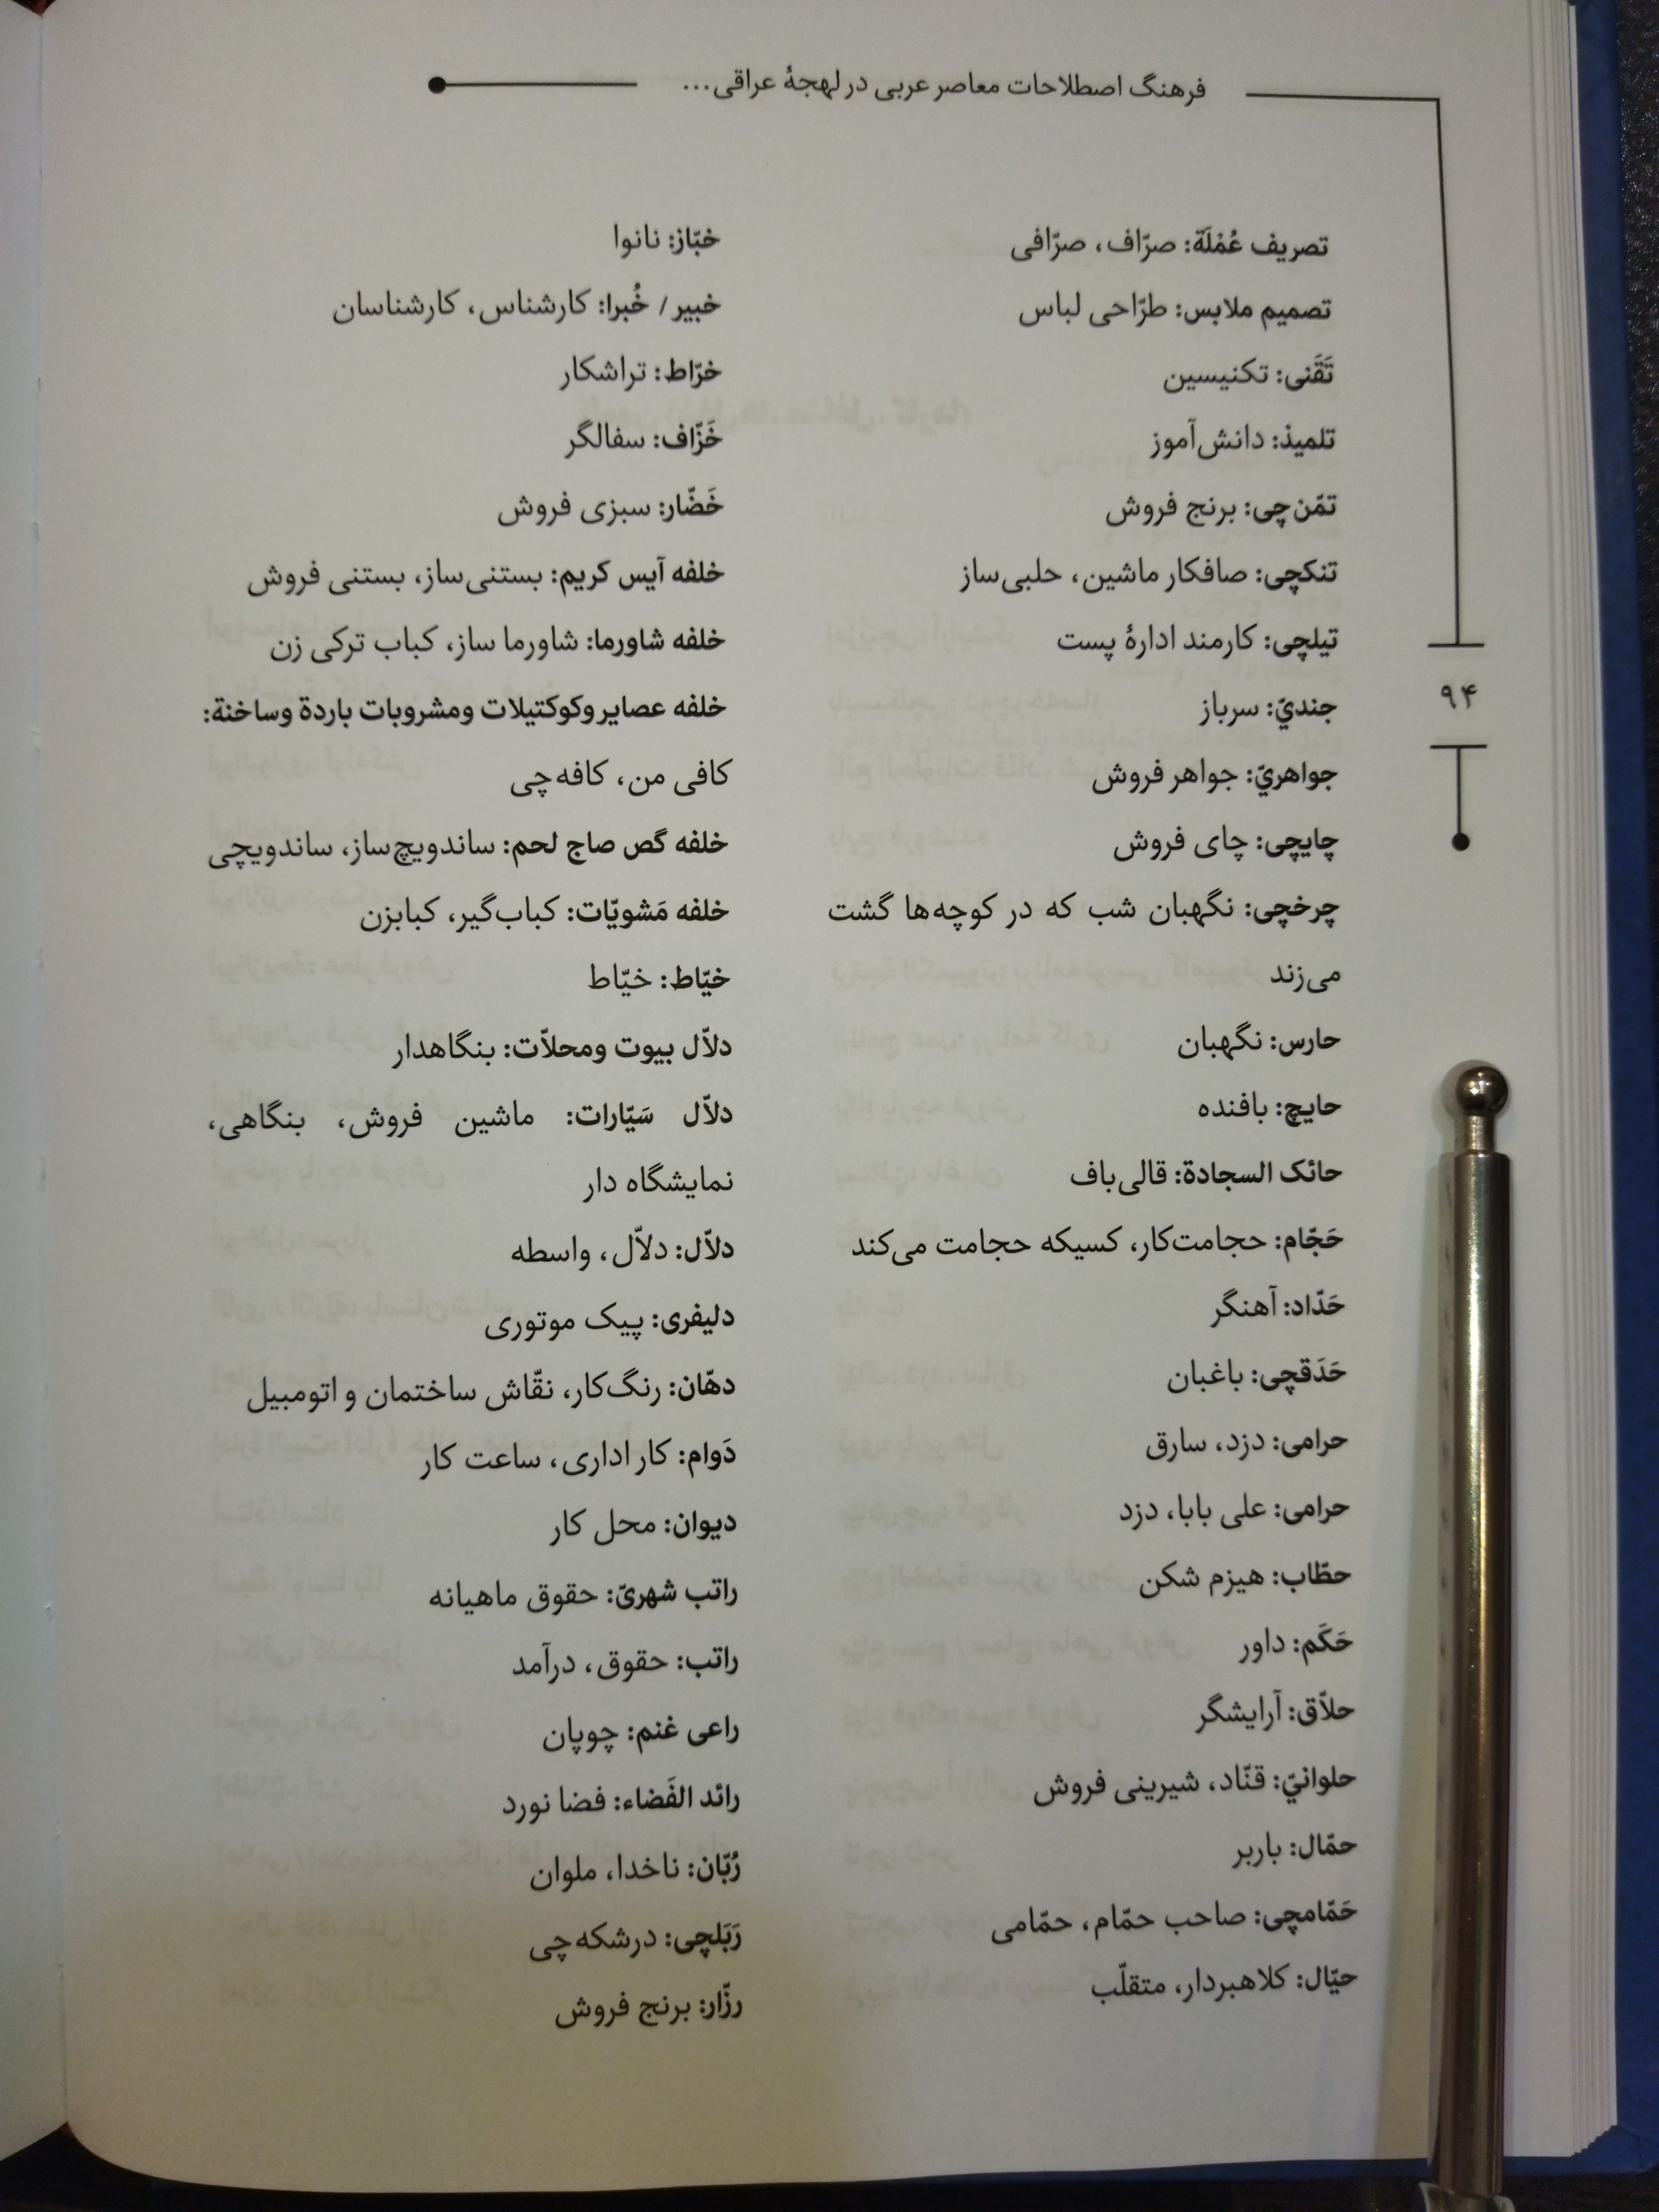 فرهنگ اصطلاحات معاصر عربی در لهجهٔ عراقی...
تصریف عُمْلَة: صرّاف، صرّافی
تصمیم ملابس: طرّاحی لباس
تَقَنی: تکنیسین
تلمیذ: دانش‌آموز
تمّن‌چی: برنج فروش
تنکچی: صافکار ماشین، حلبی‌ساز
تیلچی: کارمند ادارهٔ پست
جنديّ: سرباز
جواهريّ: جواهر فروش
چایچی: چای فروش
چرخچی: نگهبان شب که در کوچه‌ها گشت
می‌زند
حارس: نگهبان
حایچ: بافنده
حائک السجادة: قالی‌باف
حَجّام: حجامت‌کار، کسیکه حجامت می‌کند
حَدّاد: آهنگر
حَدَقچی: باغبان
حرامی: دزد، سارق
حرامی: علی بابا، دزد
حطّاب: هیزم شکن
حَکَم: داور
حلاّق: آرایشگر
حلوانيّ: قنّاد، شیرینی فروش
حمّال: باربر
حَمّامچی: صاحب حمّام، حمّامی
حیّال: کلاهبردار، متقلّب
خبّاز: نانوا
خبیر / خُبرا: کارشناس، کارشناسان
خرّاط: تراشکار
خَزّاف: سفالگر
خَضّار: سبزی فروش
خلفه آیس کریم: بستنی‌ساز، بستنی فروش
خلفه شاورما: شاورما ساز، کباب ترکی زن
خلفه عصایر وکوکتیلات ومشروبات باردة وساخنة:
کافی من، کافه‌چی
خلفه گص صاج لحم: ساندویچ‌ساز، ساندویچی
خلفه مَشویّات: کباب‌گیر، کبابزن
خیّاط: خیّاط
دلاّل بیوت ومحلاّت: بنگاهدار
دلاّل سَیّارات: ماشین فروش، بنگاهی،
نمایشگاه دار
دلاّل: دلاّل، واسطه
دلیفری: پیک موتوری
دهّان: رنگ‌کار، نقّاش ساختمان و اتومبیل
دَوام: کار اداری، ساعت کار
دیوان: محل کار
راتب شهریّ: حقوق ماهیانه
راتب: حقوق، درآمد
راعی غنم: چوپان
رائد الفَضاء: فضا نورد
رُبّان: ناخدا، ملوان
رَبَلچی: درشکه‌چی
رزّار: برنج فروش
۹۴